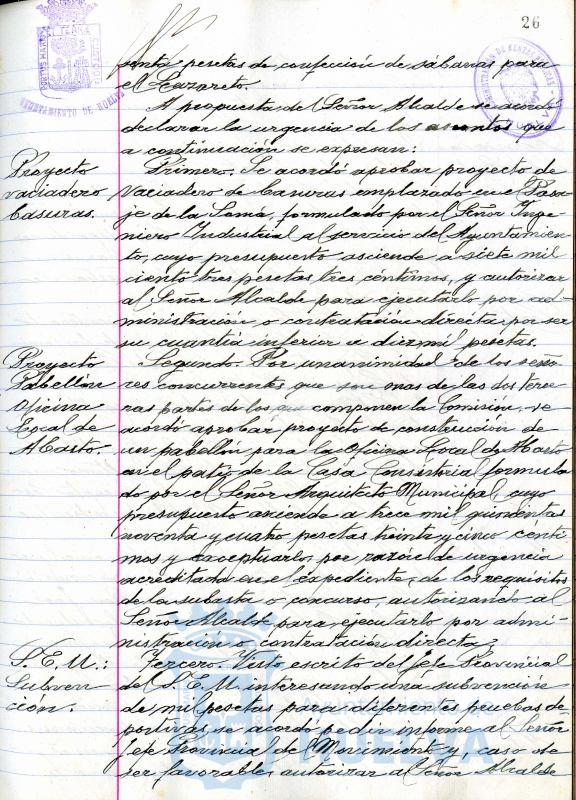 26
AYUNTAMIENTO DE HUELVA
senta pesetas de confección de sábanas para
el Lazareto.
A propuesta del Señor Alcalde se acordó
declarar la urgencia de los asuntos que
a continuación se expresan:
Proyecto
vaciadero
basuras.
Primero. Se acordó aprobar proyecto de
vaciadero de basuras emplazado en el Pasa-
je de la Soma, formulado por el Señor Inge-
niero Industrial al servicio del Ayuntamien-
to, cuyo presupuesto asciende a siete mil
ciento tres pesetas tres céntimos, y autorizar
al Señor Alcalde para ejecutarlo por ad-
ministración o contratación directa por ser
su cuantía inferior a diez mil pesetas.
Proyecto
Pabellón
Oficina
Local de
Abasto.
Segundo. Por unanimidad de los seño-
res concurrentes que son mas de las dos terce-
ras partes de los que componen la Comisión, se
acordó aprobar proyecto de construcción de
un pabellón para la Oficina Local de Abasto
en el patio de la Casa Consistorial formula-
do por el Señor Arquitecto Municipal, cuyo
presupuesto asciende a trece mil quinientas
noventa y cuatro pesetas treinta y cinco cénti-
mos y exceptuarlo por razón de urgencia
acreditada en el expediente, de los requisitos
de la subasta o concurso, autorizando al
Señor Alcalde para ejecutarlo por admi-
nistración o contratación directa,
S. E. U.:
Subven-
cion.
Tercero. Visto escrito del Jefe Provincial
del S. E. U. interesando una subvención
de mil pesetas para diferentes pruebas de-
portivas se acordó pedir informe al Señor
Jefe Provincial del Movimiento y, caso de
ser favorable, autorizar al Señor Alcalde